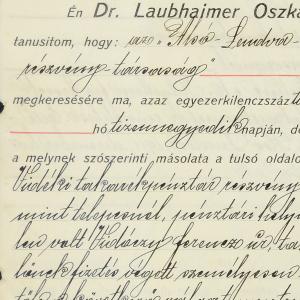 Én Dr. Laubhaimer Oszká
tanusítom, hogy: az „Alsó Lendva
részvény társaság"
megkeresésére ma, azaz egyezerkilenczszáz t
hó tizennegyedik napján, dé
a melynek szószerinti másolata a tulsó oldalo
Vidéki takarékpénztár részvény
mint telepesnél, pénztári helyi
len volt Vidóczy Ferencz úr, ta
fizetés végett személyesen